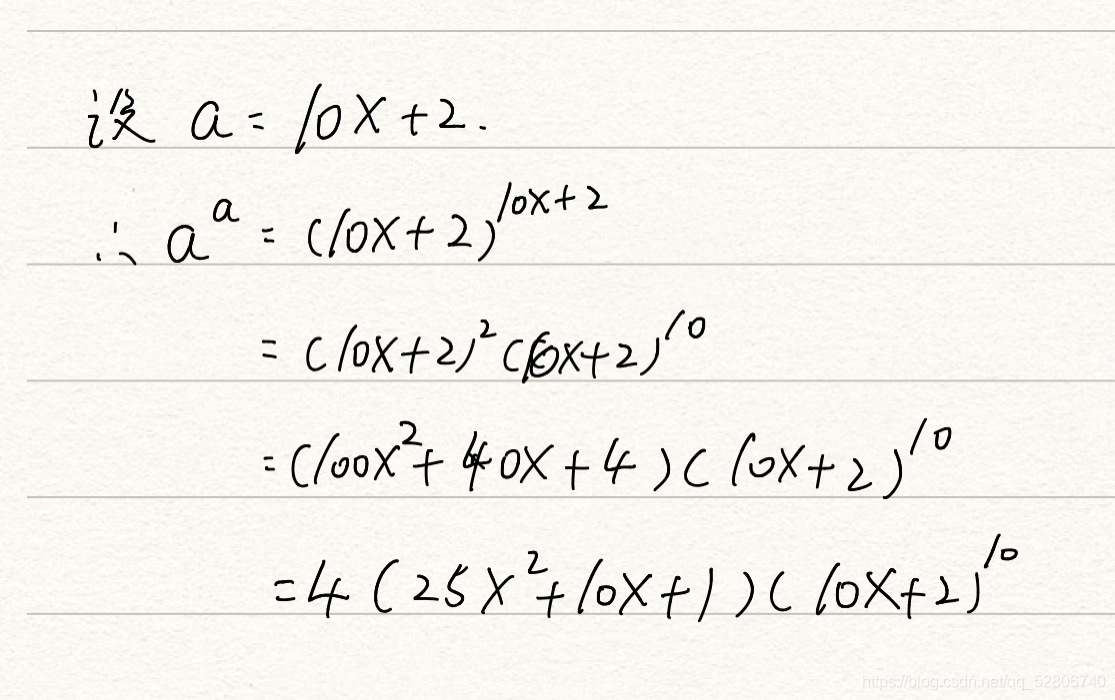 设 a = 10X + 2.
∴ a^a = (10X + 2)^{10X + 2}
= (10X + 2)^2 (10X + 2)^{10}
= (100X^2 + 40X + 4) (10X + 2)^{10}
= 4 (25X^2 + 10X + 1) (10X + 2)^{10}
https://blog.csdn.net/qq_52806740